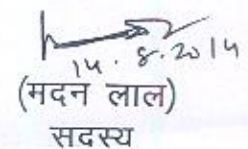 14.8.2014
(मदन लाल)
सदस्य